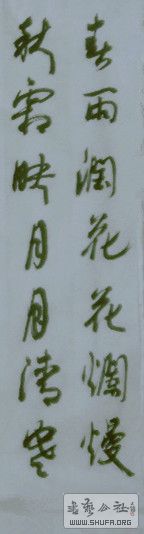 春雨潤花花爛熳
秋霜映月月清寒
书艺公社
WWW.SHUFA.ORG